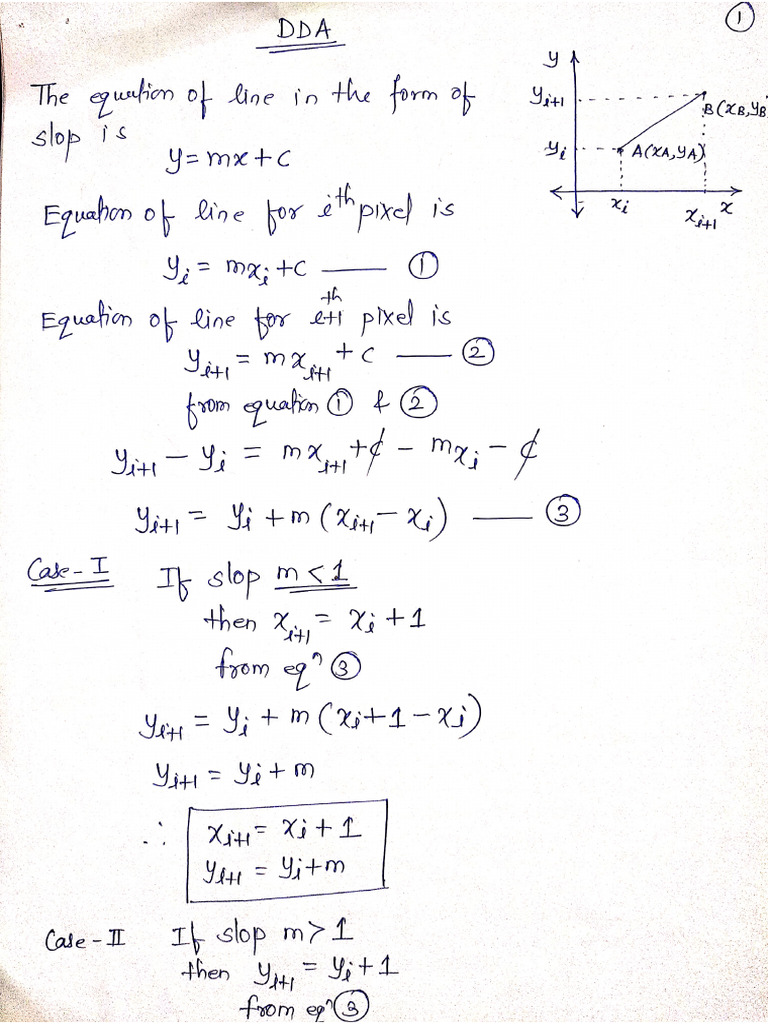 ①
DDA
The equation of line in the form of
slop is
y = mx + c
Equation of line for ith pixel is
yi = mxi + c —— ①
Equation of line for i+1th pixel is
yi+1 = mxi+1 + c —— ②
from equation ① & ②
yi+1 − yi = mxi+1 + c − mxi − c
yi+1 = yi + m (xi+1 − xi) —— ③
Case-I If slop m < 1
then xi+1 = xi + 1
from eqn ③
yi+1 = yi + m (xi + 1 − xi)
yi+1 = yi + m
∴ xi+1 = xi + 1
yi+1 = yi + m
Case-II If slop m > 1
then yi+1 = yi + 1
from eqn ③
y
yi+1
B(xB, yB
yi
A(xA, yA)
xi
xi+1
x